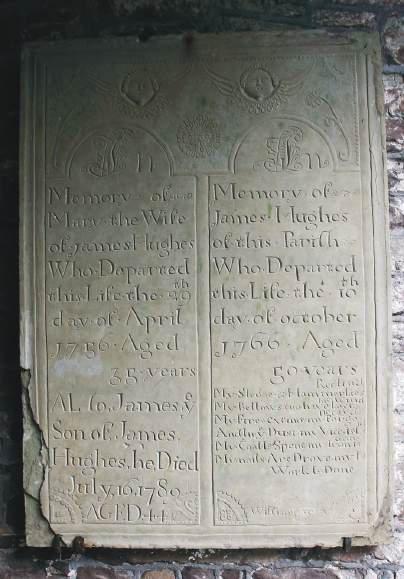 In
Memory of
Mary the Wife
of James Hughes
Who Departed
this Life the 29th
day of April
1756 Aged
35 years
ALso James ye
Son of James
Hughes, he Died
July 16 1780
AGED 44
In
Memory of
James Hughes
of this Parish
Who Departed
this Life the 16th
day of october
1766 Aged
50 years
My Sledge
My Bellows
My Fire
My Coal Spent my
My nails Are Drove my
Work is Done
William